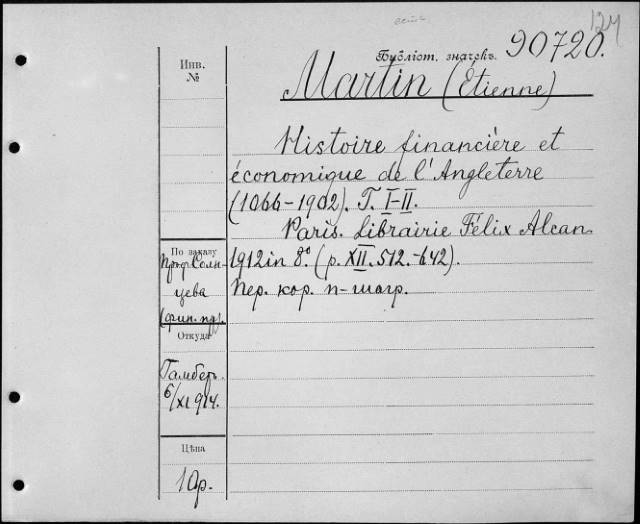 124
Библіот. значекъ 90720.
Инв. №
Martin (Étienne)
Histoire financière et
économique de l'Angleterre
(1066-1902). T. I-II.
Paris. Librairie Félix Alcan
1912 in 8º. (p. XII. 512.-642).
Пер. кор. п-шагр.
По заказу
проф. Солн-
цева
(фин. пр).
Откуда
Гамбер.
6/XI 914.
Цѣна
10р.